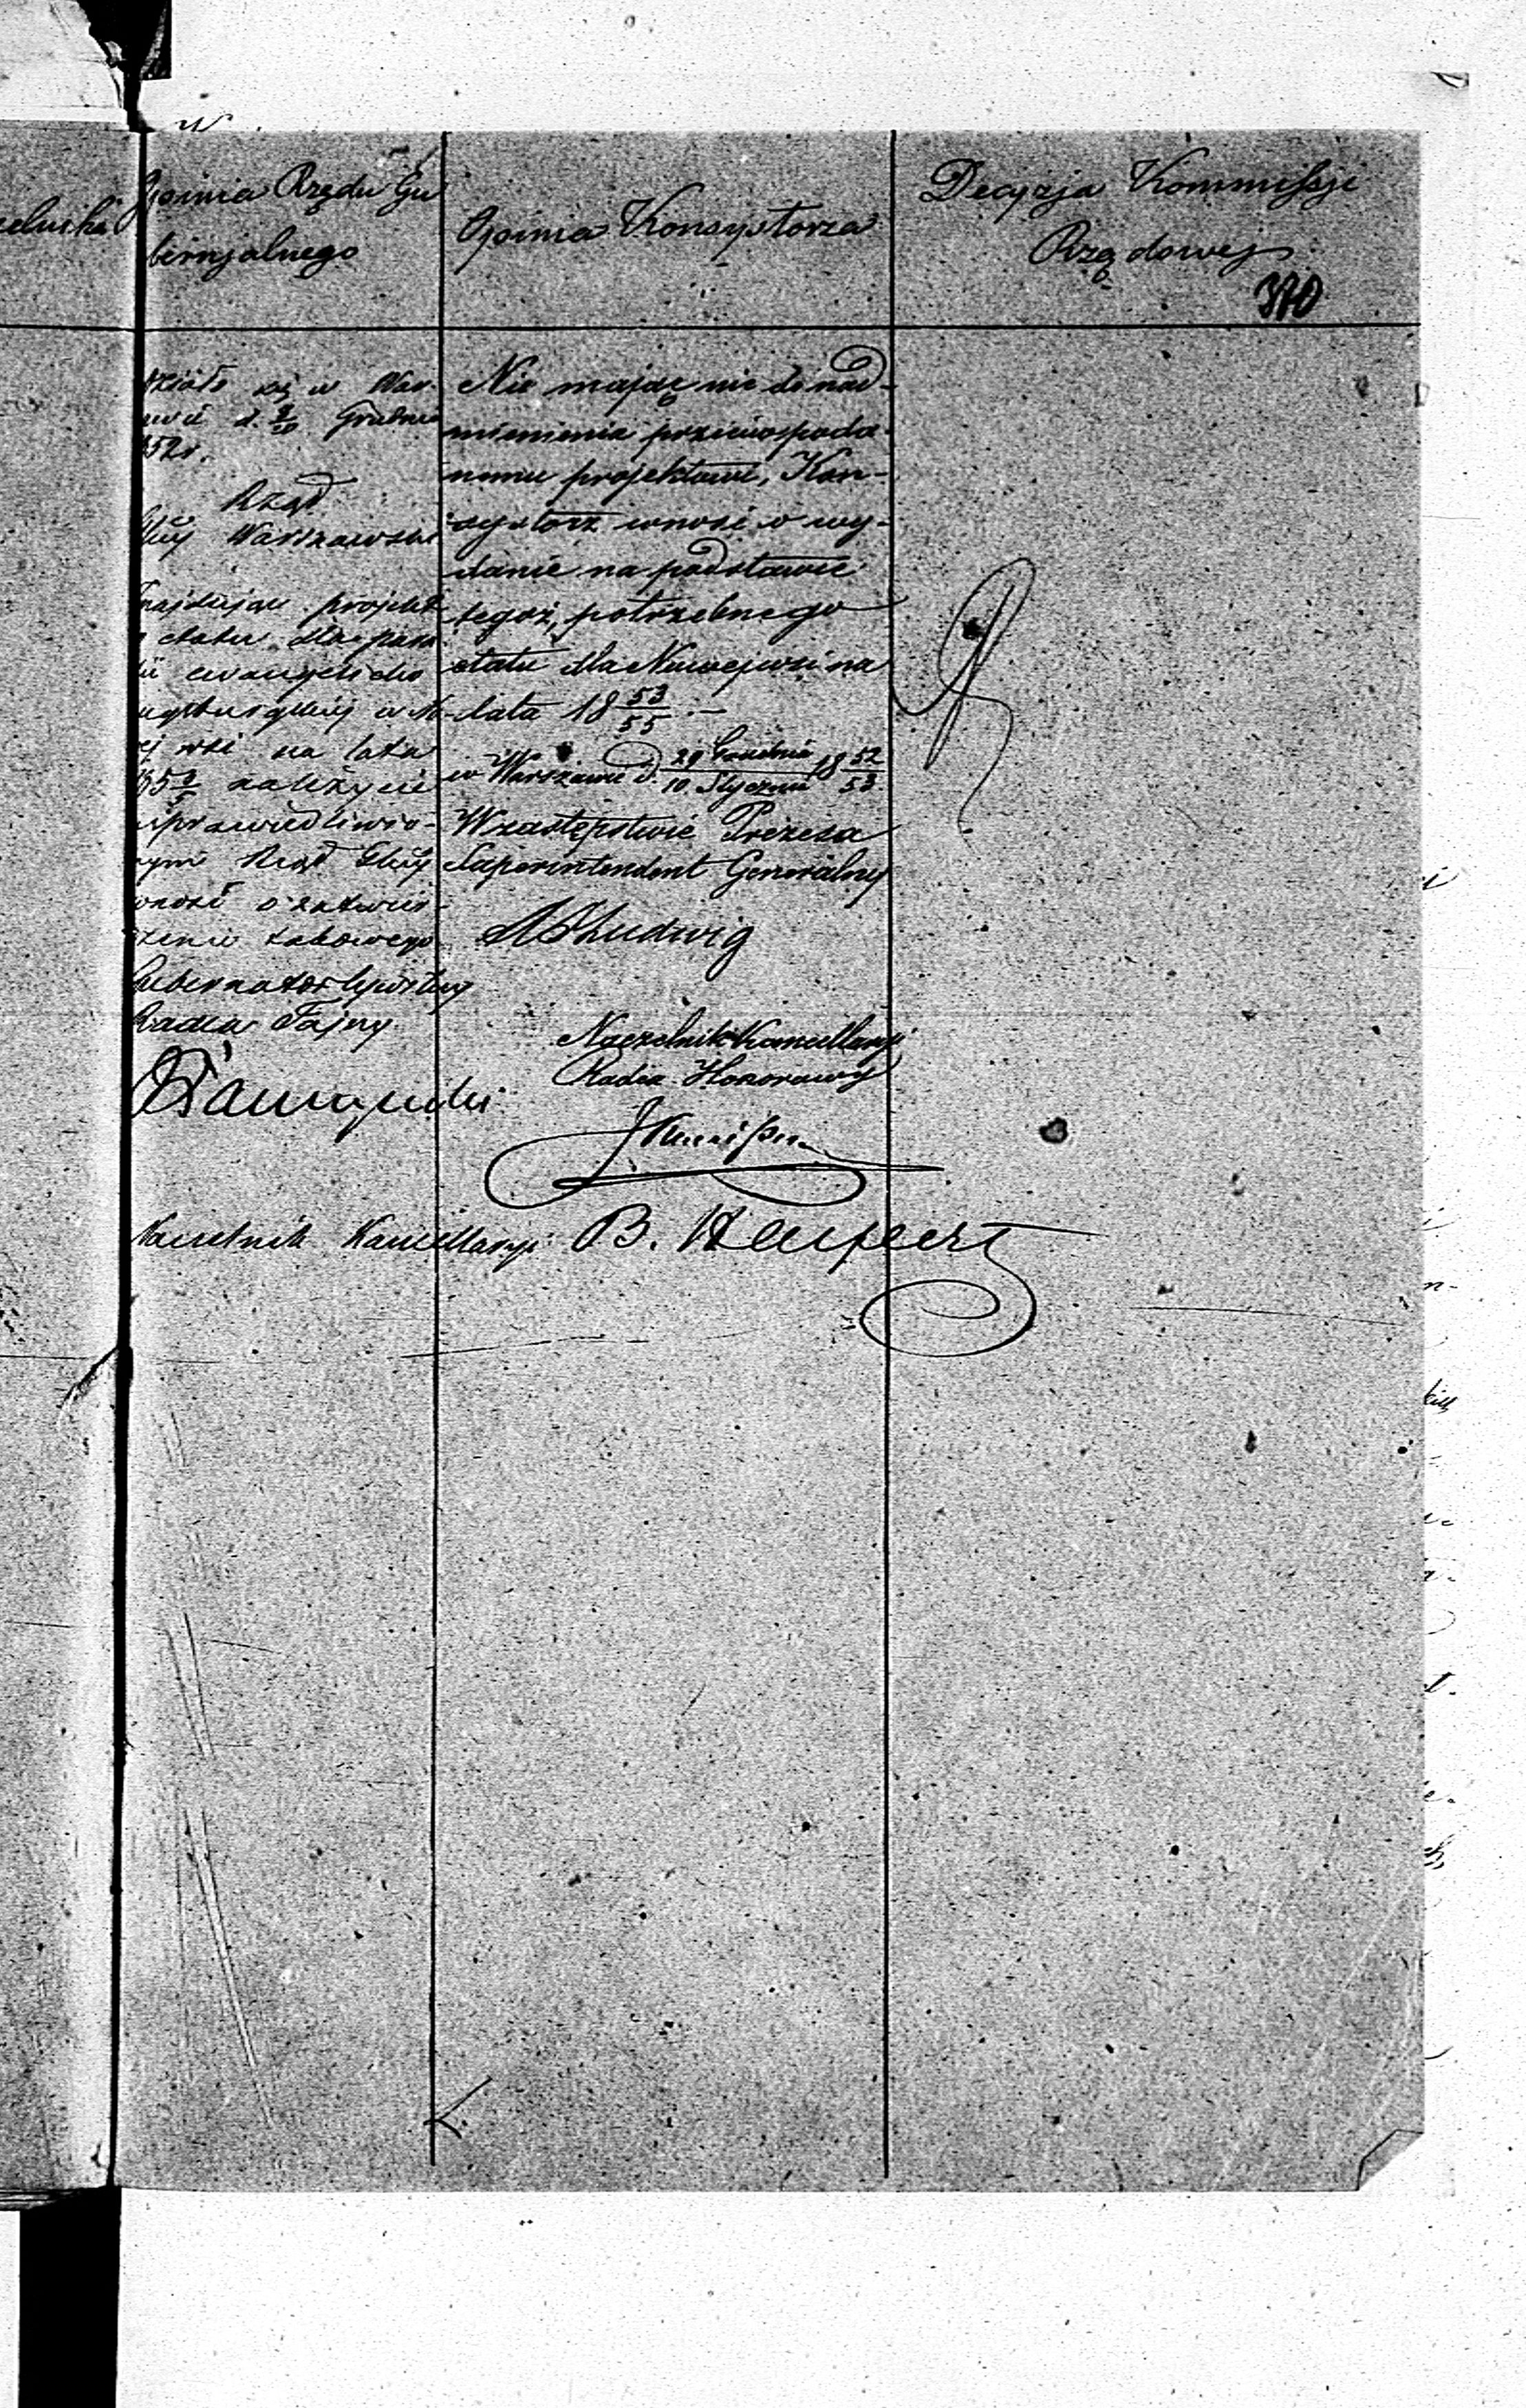 Opinia Rządu Gu
bernjalnego
Opinia Konsystorza
Decyzja Kommissji
Rządowej
370
działo się w War-
Grudnia
852 r.
Rząd
Warszawski
znajdując projekt
etatu dla para
ewangelicko
augsburgskiej w N
ej wsi na lata
należycie
usprawiedliwio-
nym Rząd Gbny
wnosi o zatwier-
dzenie takowego
Gubernator Cywilny
Radca Tajny
Naczelnik Kancellaryi
Nie mając nic do nad-
mienienia przeciwko poda-
nemu projektowi, Kon-
systorz wnosi o wy-
danie na podstawie
tegoż, potrzebnego
etatu dla Nowejwsi na
lata 18 53/55 .—
w Warszawie d. 29 Grudnia/10 Stycznia 18 52/53
W zastępstwie Prezesa
Superintendent Generalny
Ludwig
Naczelnik Kancellaryi
Radca Honorowy
B.